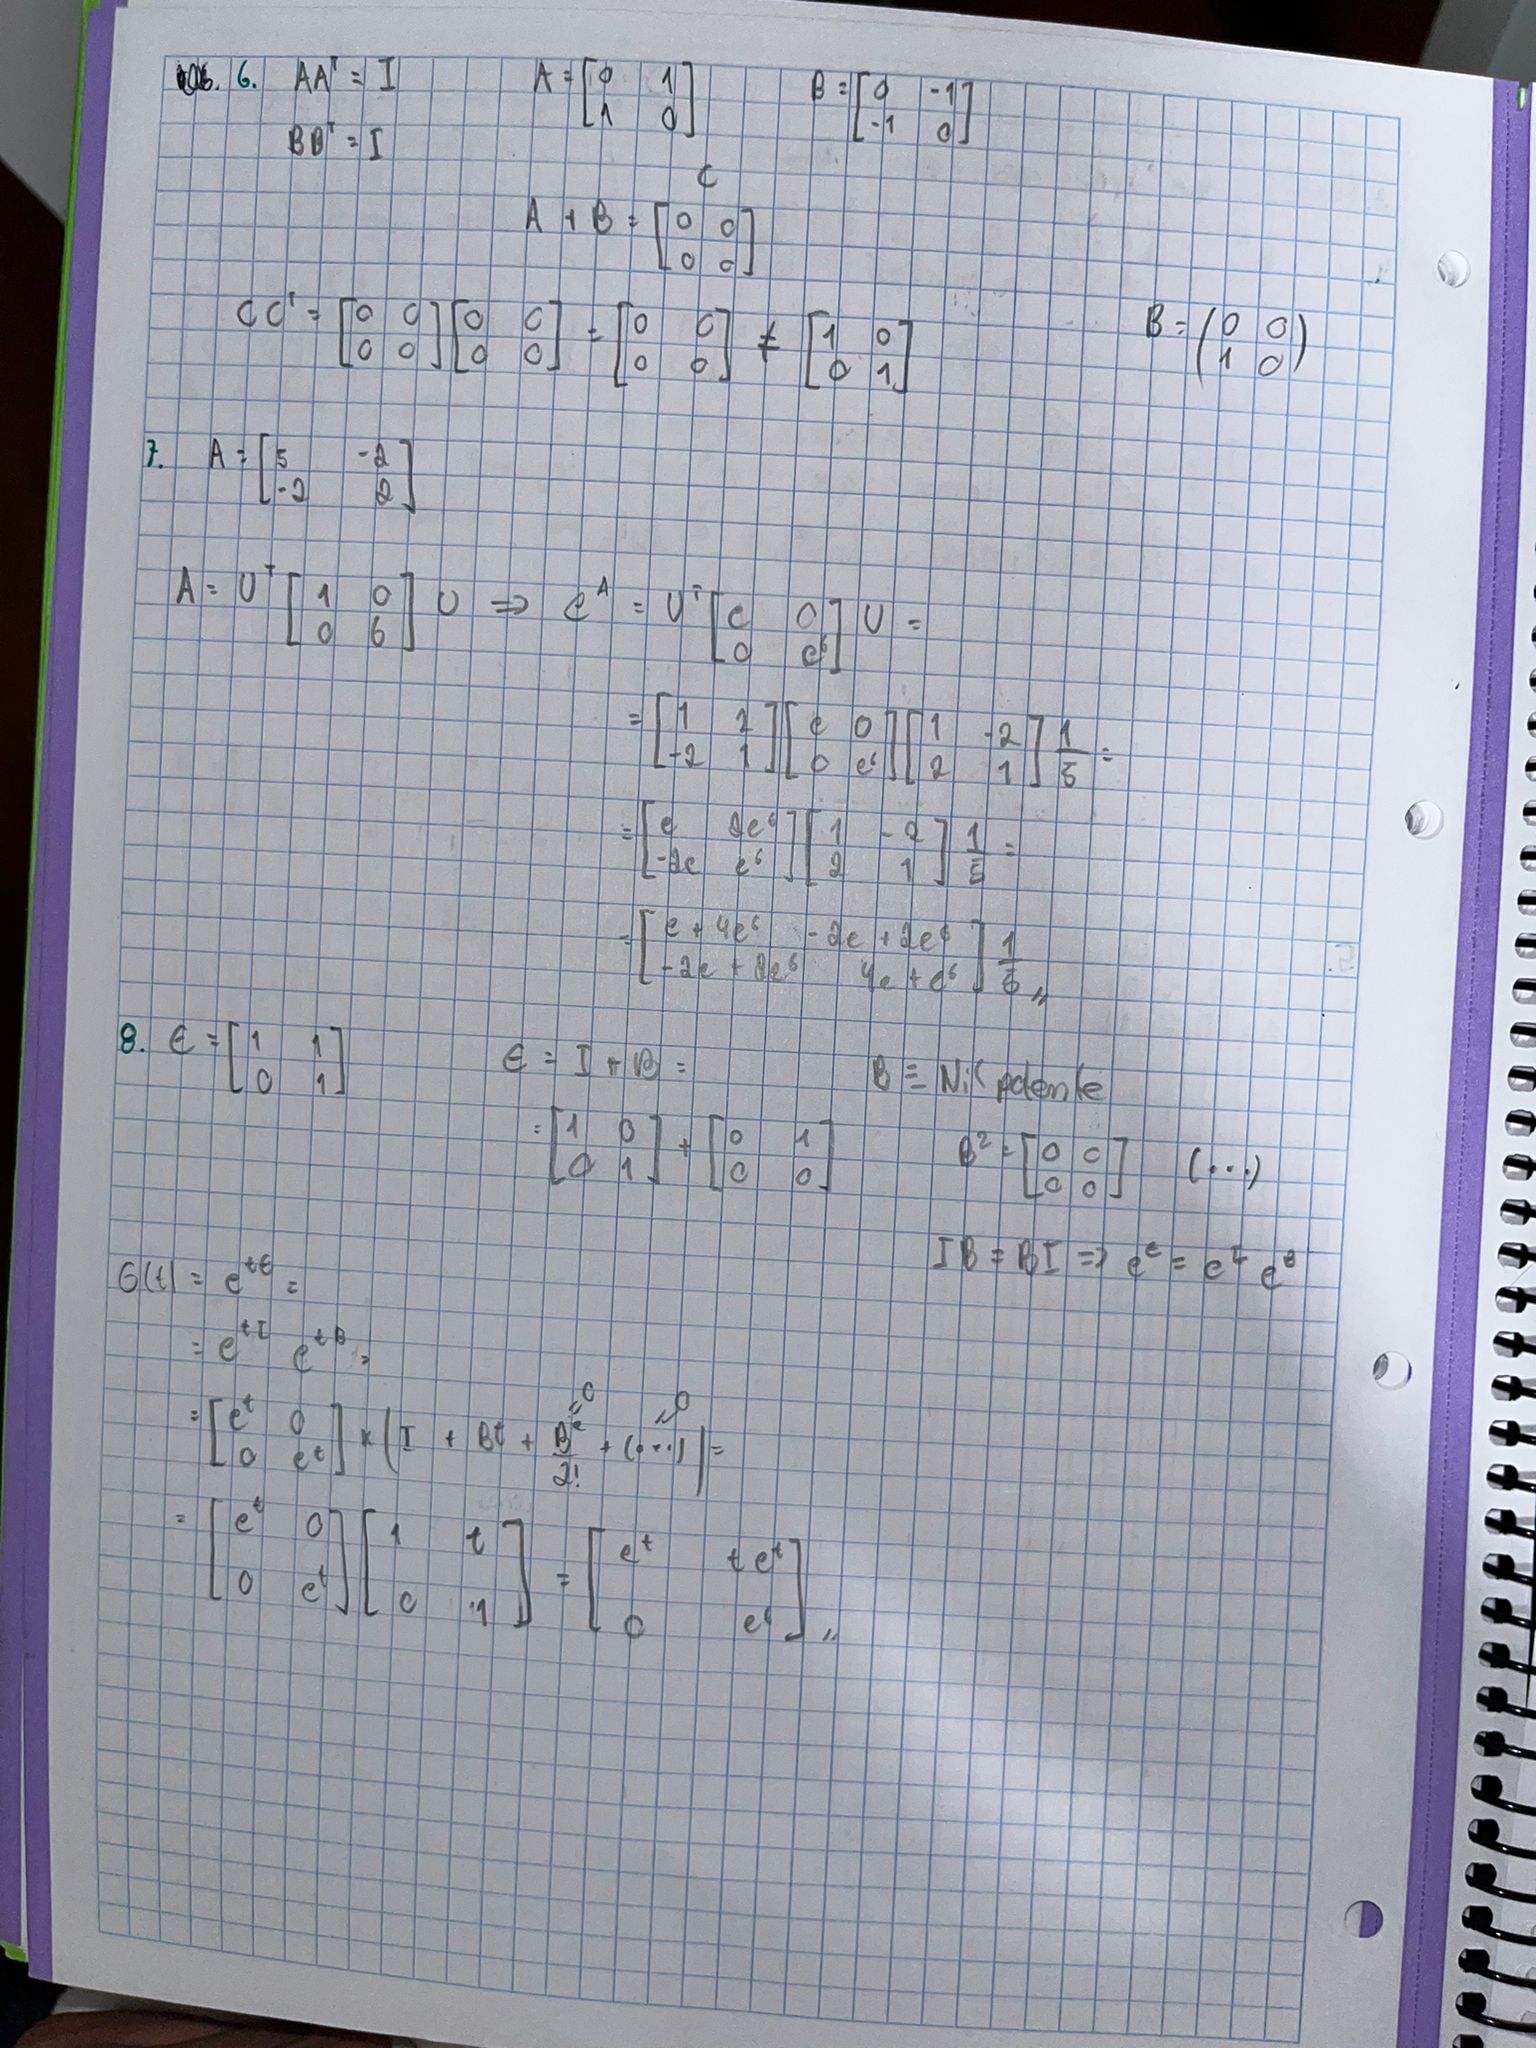 6. AAᵀ = I A = [0 1; 1 0] B = [0 -1; -1 0]
BBᵀ = I
C
A + B = [0 0; 0 0]
CCᵀ = [0 0; 0 0] [0 0; 0 0] = [0 0; 0 0] ≠ [1 0; 0 1] B = (0 0; 1 0)
7. A = [5 -2; -2 2]
A = Uᵀ [1 0; 0 6] U ⇒ eᴬ = Uᵀ [e 0; 0 e⁶] U =
= [1 2; -2 1] [e 0; 0 e⁶] [1 -2; 2 1] 1/5 =
= [e 2e⁶; -2e e⁶] [1 -2; 2 1] 1/5 =
= [e + 4e⁶ -2e + 2e⁶; -2e + 2e⁶ 4e + e⁶] 1/5 //
8. E = [1 1; 0 1] E = I + B = B ≡ Nilpotente
= [1 0; 0 1] + [0 1; 0 0] B² = [0 0; 0 0] (...)
IB = BI ⇒ eᴱ = eᴵ eᴮ
G(t) = e^{tE} =
= e^{tI} e^{tB} =
= [eᵗ 0; 0 eᵗ] × (I + Bt + B²/2! + (...)) =
= 0
= 0
= [eᵗ 0; 0 eᵗ] [1 t; 0 1] = [eᵗ t eᵗ; 0 eᵗ] //